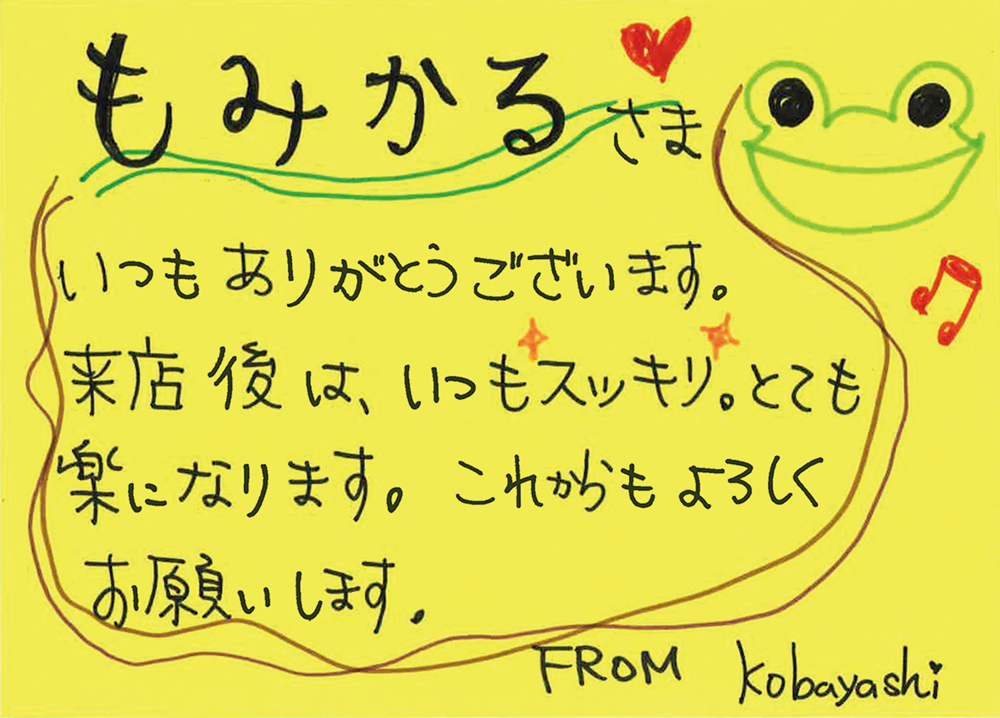 もみかる さま
いつもありがとうございます。
来店後は、いつもスッキリ。とても
楽になります。これからもよろしく
お願いします。
FROM kobayashi